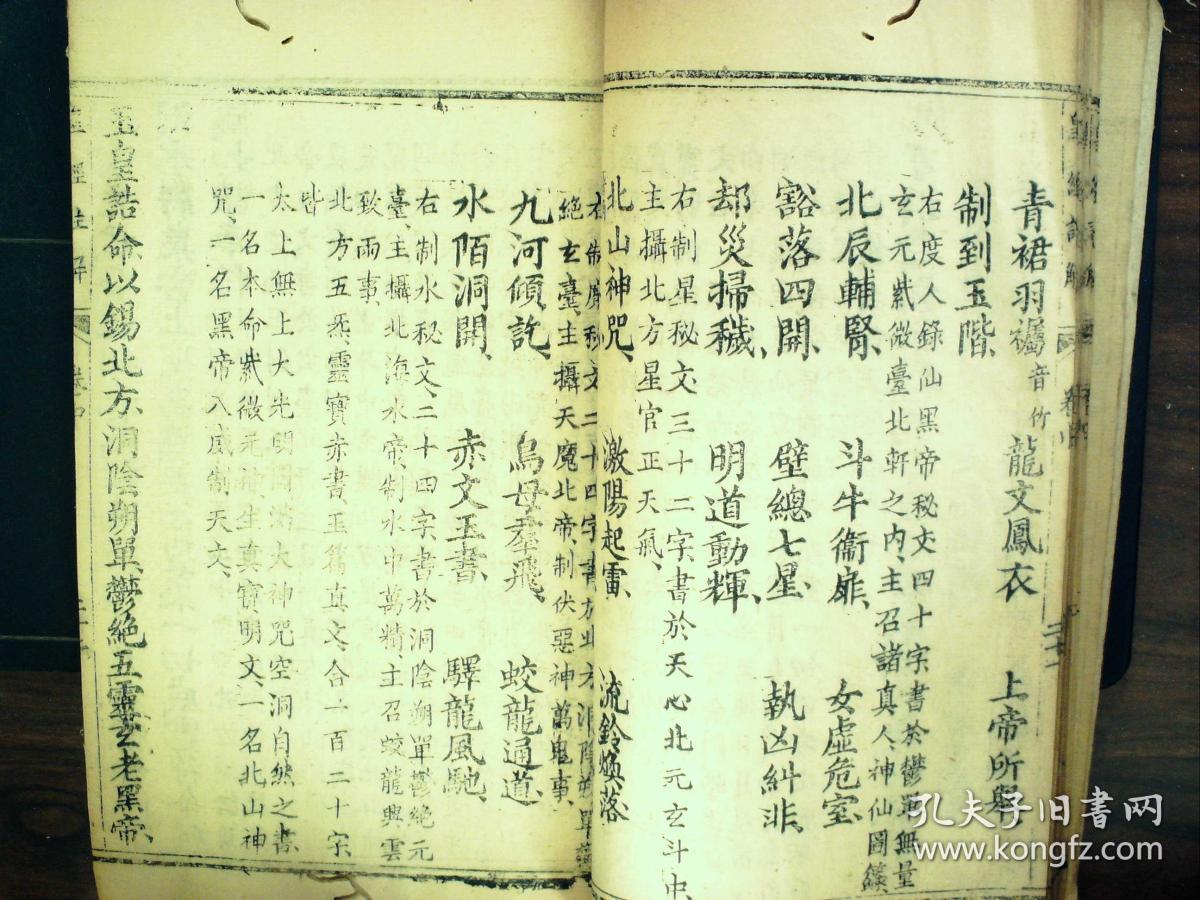 青裙羽襡 音竹 龍文鳳衣 上帝所舉
制到玉階
右度人錄仙黑帝秘文四十字書於鬱單無量
玄元紫微臺北軒之內、主召諸真人、神仙圖籙、
北辰輔腎、 斗牛衞扉、 女虛危室、
豁落四開、 壁總七星、 執凶糾非、
却災掃穢、 明道動輝、
右制星秘文、三十二字書於天心北元玄斗中、
主攝北方星官正天氣、
北山神咒、 激陽起雷、 流鈴煥落、
右制 秘文二十四字書於北方洞陰朔單鬱
絕玄臺、主攝天魔北帝、制伏惡神萬鬼事、
九河傾訖、 鳥母羣飛、 蛟龍通道、
水陌洞開、 赤文玉書、 驛龍風馳、
右制水秘文、二十四字書於洞陰朔單鬱絕元
臺、主攝北海水帝、制水中萬精、主召蛟龍興雲
致雨事、
北方五炁靈寶赤書玉篇真文、合一百二十字、
皆
太上無上大光明圓滿大神咒空洞自然之書、
一名本命紫微元神生真寶明文、一名北山神
咒、一名黑帝八威制天文、
玉皇誥命以錫北方、洞陰朔單、鬱絕五靈玄老黑帝、
皇經註解 卷四
孔夫子旧书网
www.kongfz.com